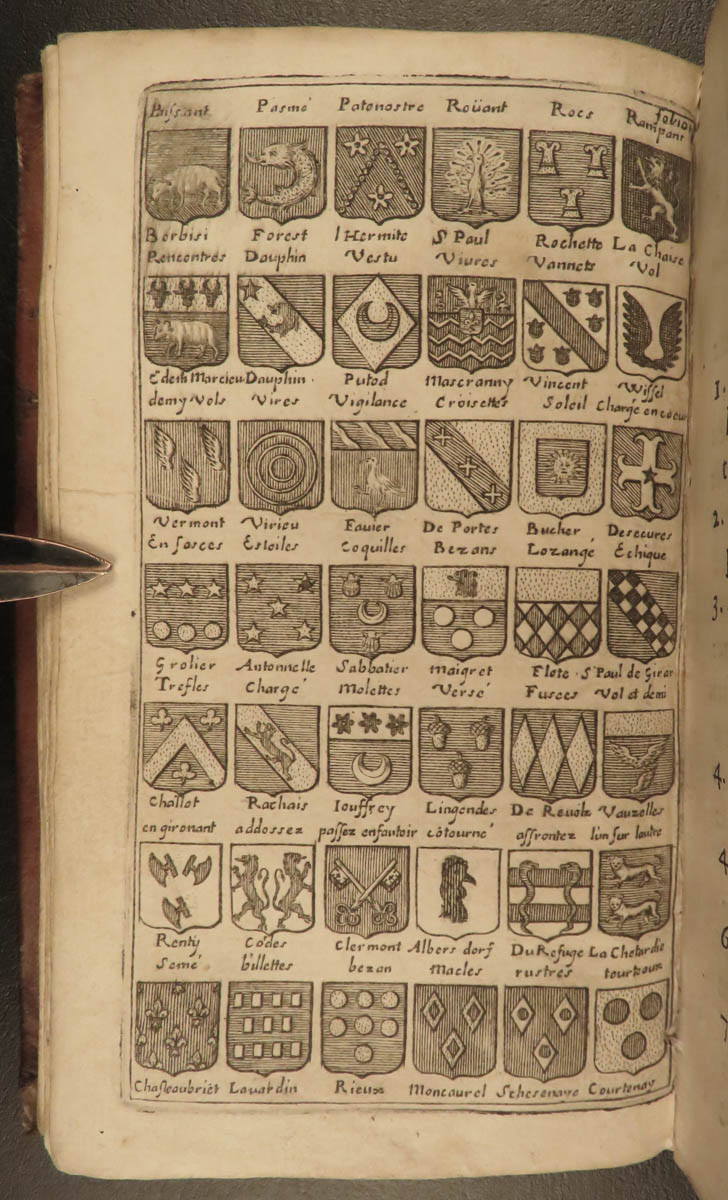 Paissant Pasmé Patenostre Roüant Rocs Rampant
folio
Berbisi Forest l'Hermite St Paul Rochette La Chaise
Rencontres Dauphin Vestu Vivres Vannets Vol
Edem Marcieu Dauphin Putod Mascranny Vincent Wissel
demy Vols Vires Vigilance Croisettes Soleil Chargé en coeur
Vermont Virieu Favier De Portes Bucher Desecures
En fasces Estoiles Coquilles Bezans Lozangé Echiqué
Grolier Antonnelle Sabbatier Maigret Flote St Paul de Girar
Trefles Chargé Molettes Versé Fusees Vol et demi
Challot Rachais Iouffrey Lingendes De Reuol Vauzelles
en gironant addossez passez en sautoir côtourné affrontez l'un sur lautre
Renty Codes Clermont Albers dorf Du Refuge La Chetardie
Semé billettes bezan Macles rustres tourteaux
Chasteaubriét Lavardin Rieux Montaurel Schesenaye Courtenay
1.
2.
3.
4.
4.
6
7